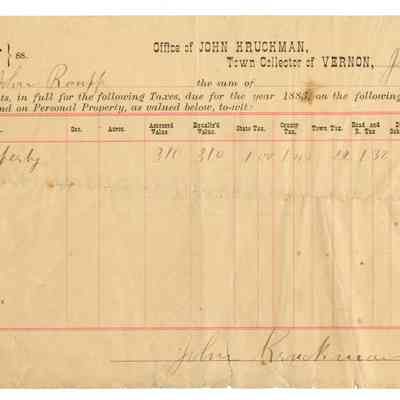 Office of JOHN KRUCKMAN,
88.
Town Collector of VERNON, J
John Roupp the sum of
ts, in full for the following Taxes, due for the year 1883, on the following
nd on Personal Property, as valued below, to-wit:
Sec. Acres. Assessed Value Equaliz'd Value State Tax. County Tax. Town Tax. Road and B. Tax
perty 310 310 1 00 1 32
John Kruckman